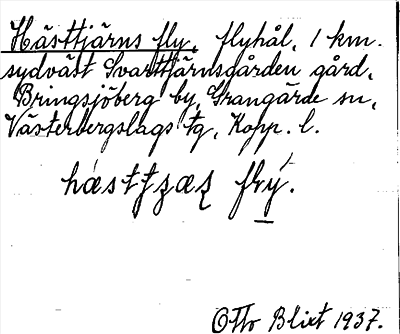 Hästtjärns fly, flyhål, 1 km.
sydväst Svarttjärnsgården gård,
Bringsjöberg by, Grangärde sn,
Västerbergslags tg, Kopp. l.
Otto Blixt 1937.